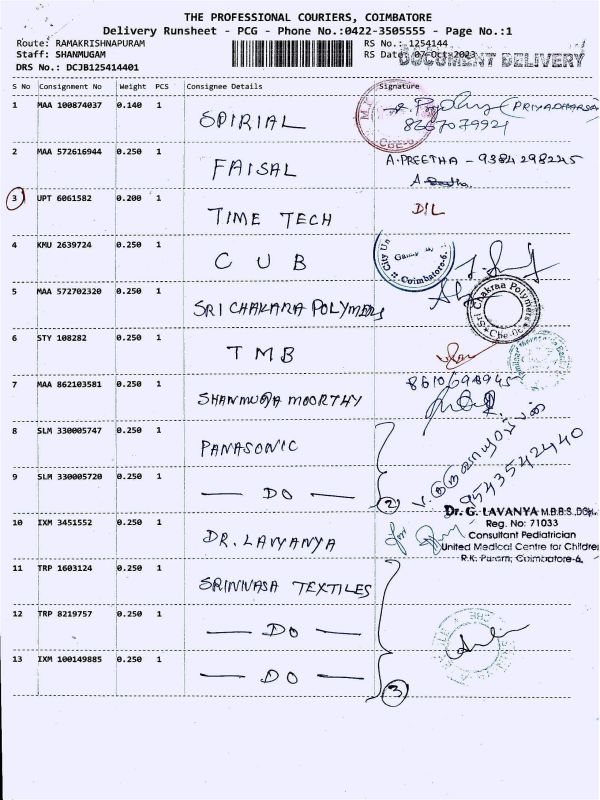 THE PROFESSIONAL COURIERS, COIMBATORE
Delivery Runsheet - PCG - Phone No.:0422-3505555 - Page No.:1
Route: RAMAKRISHNAPURAM RS No.: 1254144
Staff: SHANMUGAM RS Date: 07-Oct-2023
DOCUMENT DELIVERY
DRS No.: DCJB125414401
S No Consignment No Weight PCS Consignee Details Signature
1 MAA 100874037 0.140 1 SPIRIAL (PRIYADHARSA
8267079921
2 MAA 572616944 0.250 1 FAISAL A.PREETHA - 9384298245
3 UPT 6061582 0.200 1 TIME TECH D/L
4 KMU 2639724 0.250 1 C U B
City Un Coimbatore-6.
5 MAA 572702320 0.250 1 SRI CHAKARA POLYMERS
Sri Chakraa Polymers Cbe-06
6 STY 108282 0.250 1 T M B
7 MAA 862103581 0.250 1 SHANMUGA MOORTHY 8610698945
8 SLM 330005747 0.250 1 PANASONIC
9543542440
9 SLM 330005720 0.250 1 — DO — 2
10 IXM 3451552 0.250 1 DR. LAVYANYA
Dr. G. LAVANYA M.B.B.S.,DCH.,
Reg. No: 71033
Consultant Pediatrician
United Medical Centre for Children
R.K. Puram, Coimbatore-6.
11 TRP 1603124 0.250 1 SRINIVASA TEXTILES
12 TRP 8219757 0.250 1 — DO —
13 IXM 100149885 0.250 1 — DO — 3